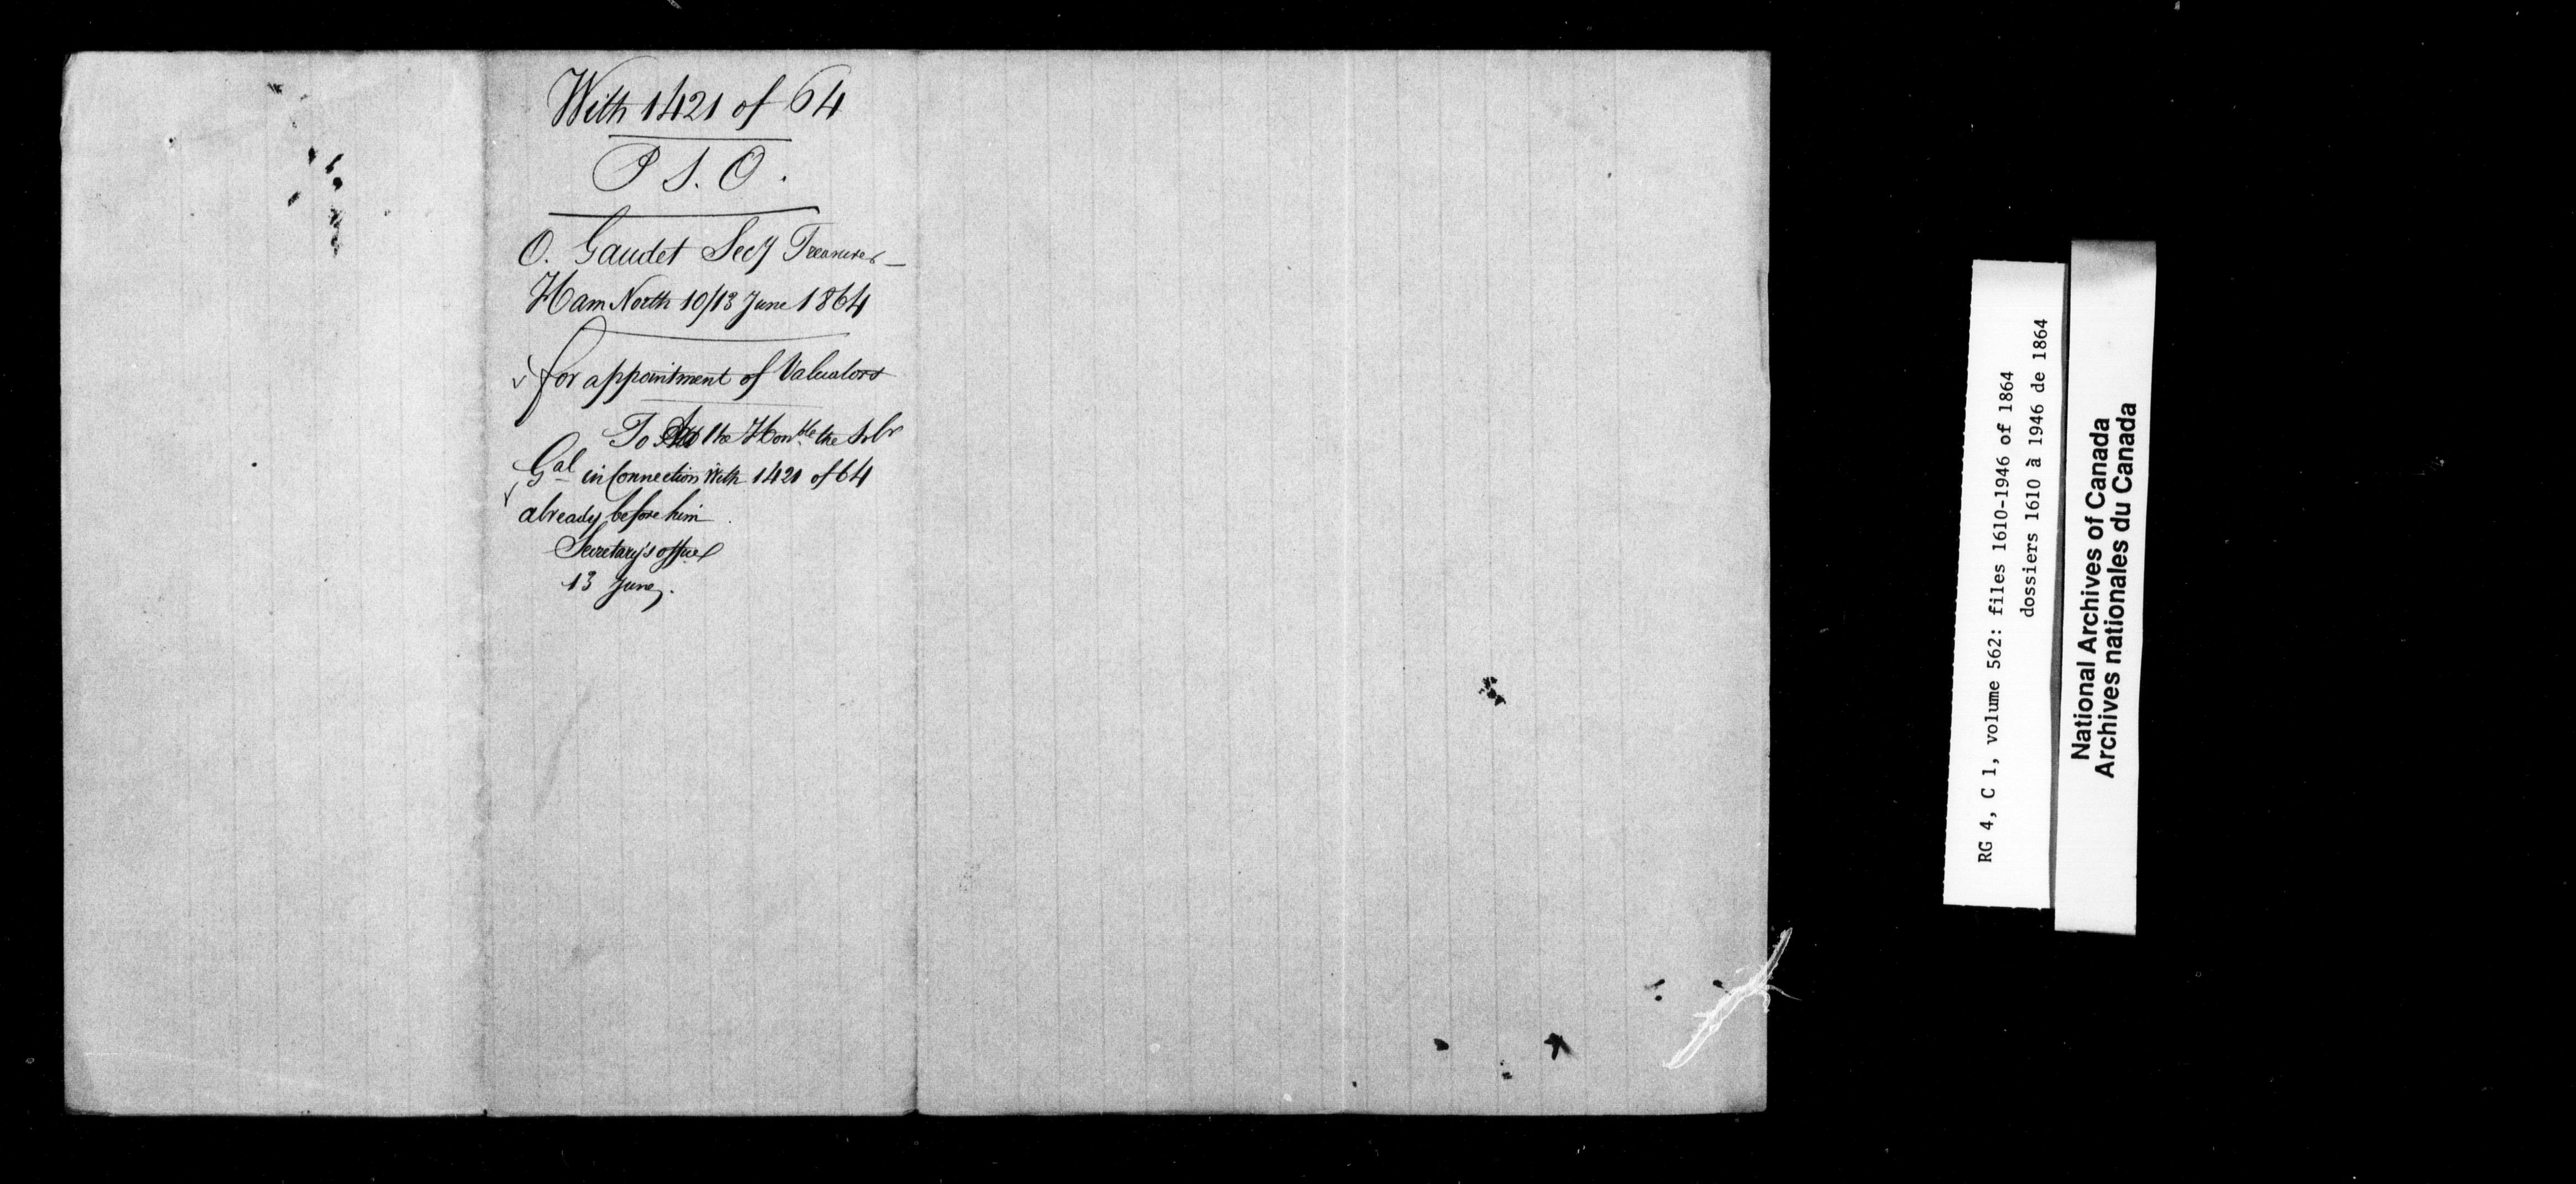 With 1421 of 64
P S. O.
O. Gaudet Secy Treasurer
Ham North 10/13 June 1864
for appointment of Valuators
To the Honble the Solr
Gal in Connection With 1421 of 64
already before him
Secretary's office
13 June.
RG 4, C 1, volume 562: files 1610-1946 of 1864
dossiers 1610 à 1946 de 1864
National Archives of Canada
Archives nationales du Canada